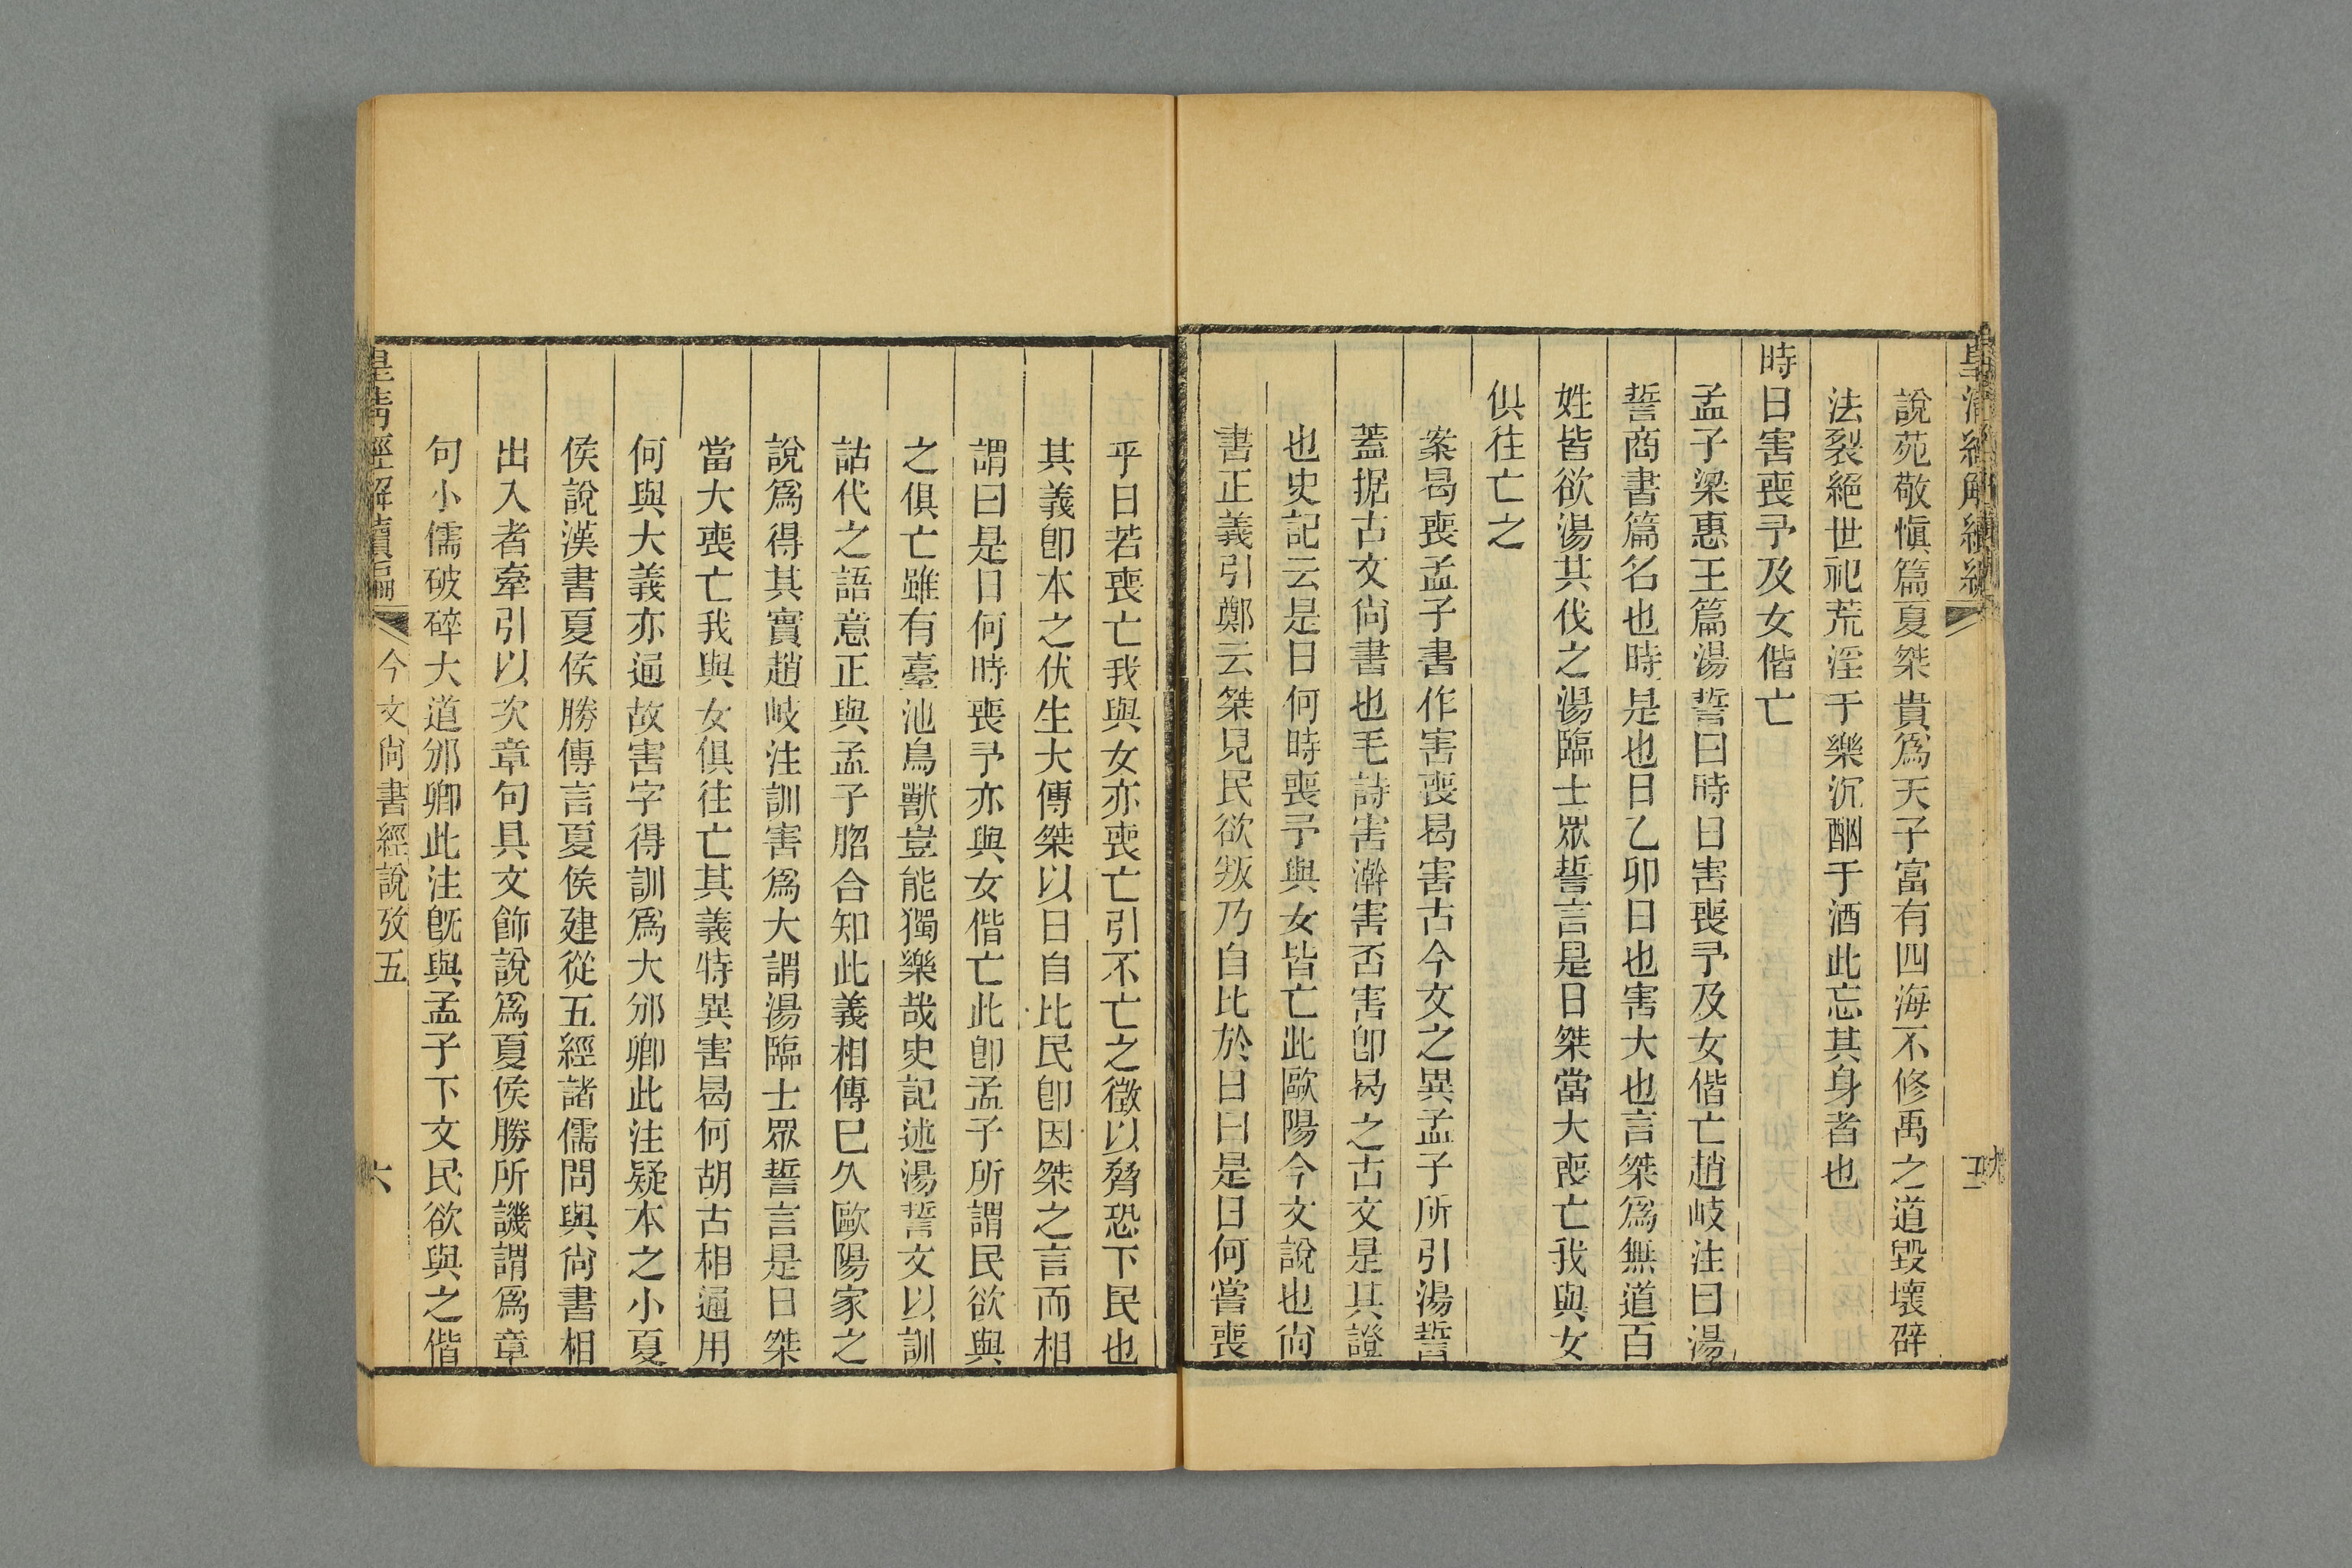 皇清經解續編
五
說苑敬愼篇夏桀貴爲天子富有四海不修禹之道毀壞辟
法裂絕世祀荒淫于樂沉酗于酒此忘其身者也
時日害喪予及女偕亡
孟子梁惠王篇湯誓曰時日害喪予及女偕亡趙岐注曰湯
誓商書篇名也時是也日乙卯日也害大也言桀爲無道百
姓皆欲湯共伐之湯臨士眾誓言是日桀當大喪亡我與女
俱往亡之
案曷喪孟子書作害喪曷害古今文之異孟子所引湯誓
蓋据古文尚書也毛詩害澣害否害卽曷之古文是其證
也史記云是日何時喪予與女皆亡此歐陽今文說也尚
書正義引鄭云桀見民欲叛乃自比於日曰是日何嘗喪
乎日若喪亡我與女亦喪亡引不亡之徵以脅恐下民也
其義卽本之伏生大傳桀以日自比民卽因桀之言而相
謂曰是日何時喪予亦與女偕亡此卽孟子所謂民欲與
之俱亡雖有臺池鳥獸豈能獨樂哉史記述湯誓文以訓
詁代之語意正與孟子脗合知此義相傳巳久歐陽家之
說爲得其實趙岐注訓害爲大謂湯臨士眾誓言是日桀
當大喪亡我與女俱往亡其義特異害曷何胡古相通用
何與大義亦通故害字得訓爲大邠卿此注疑本之小夏
侯說漢書夏侯勝傳言夏侯建從五經諸儒問與尚書相
出入者牽引以次章句具文飾說爲夏侯勝所譏謂爲章
句小儒破碎大道邠卿此注旣與孟子下文民欲與之偕
皇清經解續編
今文尚書經說攷五
六